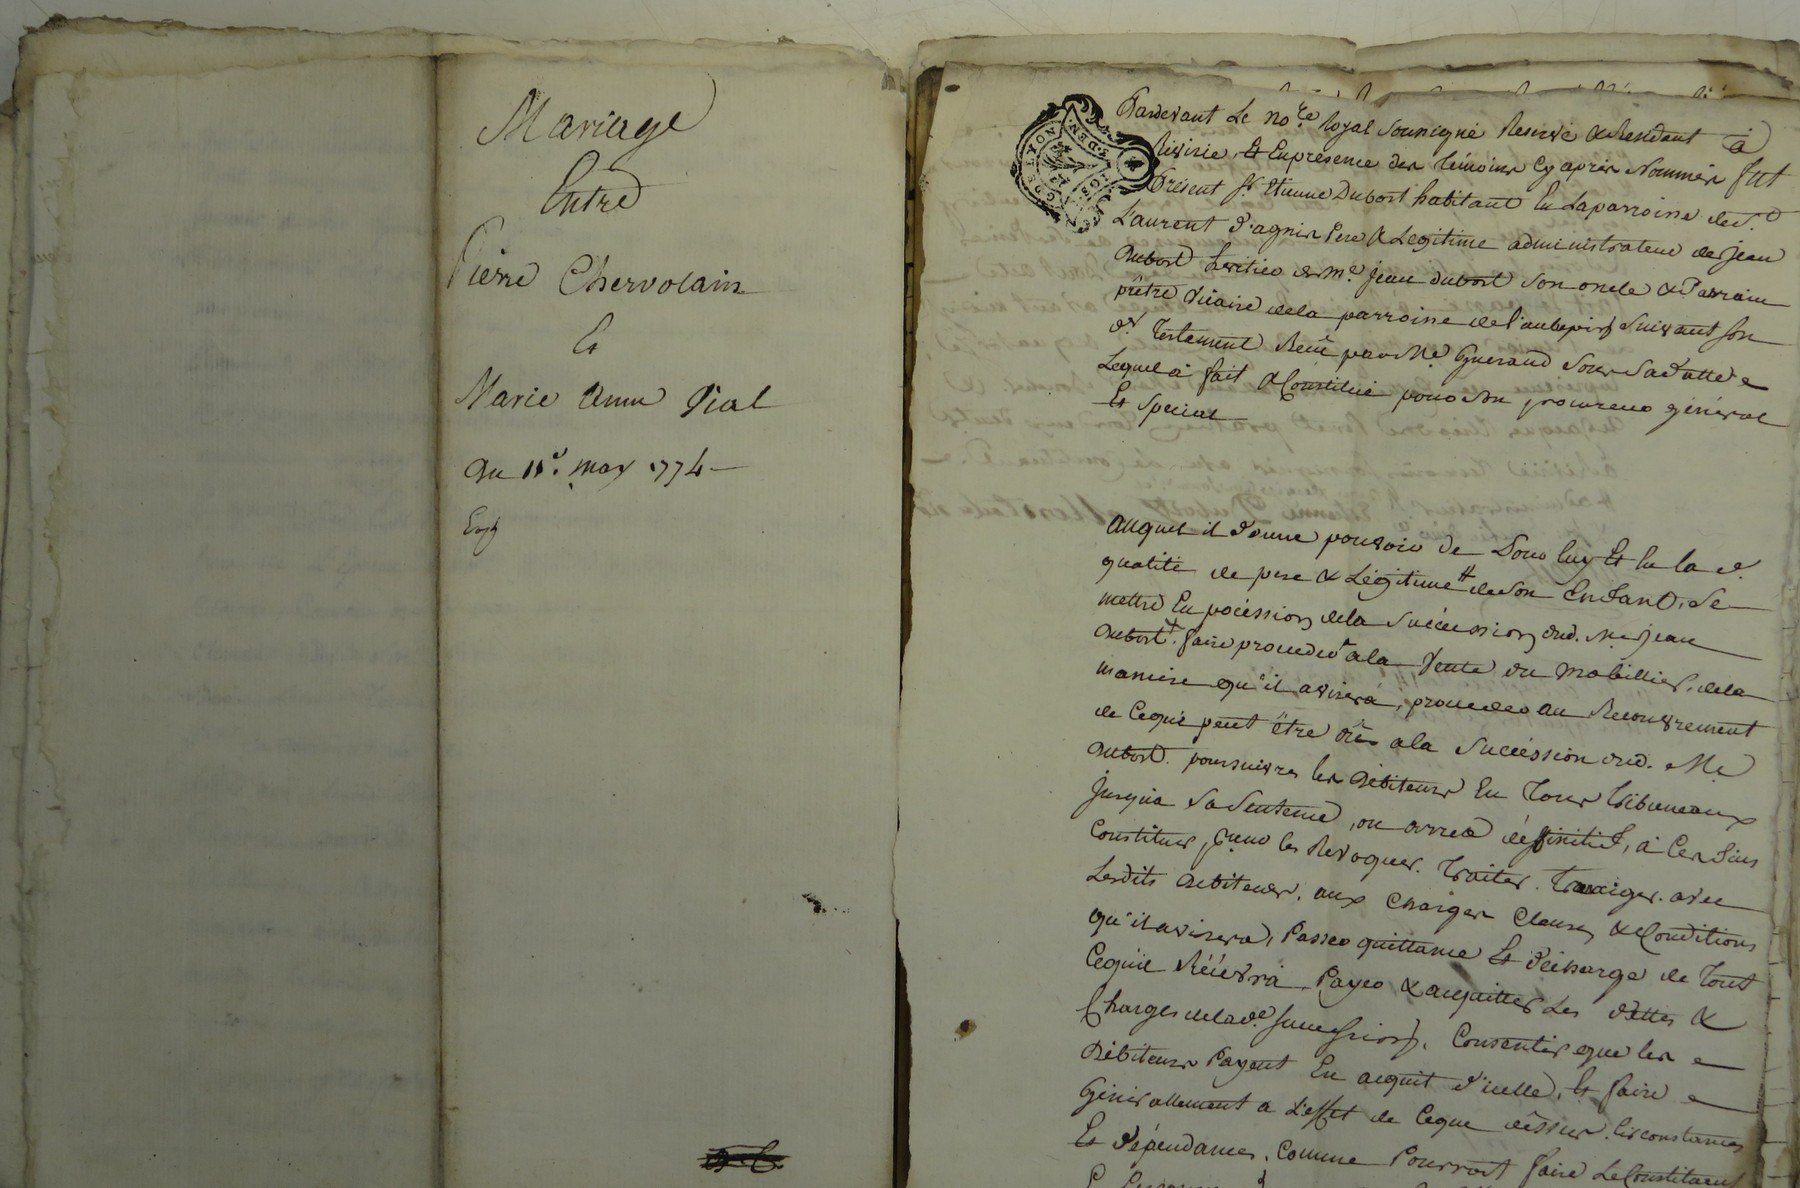 Mariage
Entre
Pierre Chervolain
Et
Marie Anne Vial
Du 15e. may 1774
Exp
Pardevant Le nore. Royal Sousigné Reservé & Residant à
Riverie, Et En presence des Témoins Cy après Nommés fut
Présent Sr. Etienne Dubost habitant En La parroisse de St.
Laurent d'agnis Pere & Legitime administrateur de jean
Dubost heritier de Me. jean dubost son oncle & Parrain
prêtre Vicaire de la parroisse de l'aubepin suivant son
dt. Testament Reçu par Me. Guerand sous sa datte
Lequel a fait & Constitué pour son procureur général
Et Special
Auquel il donne pouvoir de Pour luy Et En la de.
qualité de pere & Légitime # de son Enfant, Se
mettre En pocéssion de la Succession dud. Me. jean
Dubost, faire proceder a la Vente du mobillier, de la
maniere qu'il avisera, proceder au Recouvrement
de Ce qui peut être dû a la Succéssion dud. Me.
Dubost. poursuivre les Débiteurs En Tous tribuneaux
jusqu'a Sentence, ou arrest déffinitif, à Ces fins
Constituer, les Revoquer. Traiter. Transiger. avec
Lesdits Debiteurs. aux Charges Clauses & Conditions
qu'il avisera, Passer quittance Et décharge de Tout
Ce qu'il Récévra Payer & acquitter Les dettes &
Charges de la de. succession, Consentir que les
Débiteurs Payent En acquit d'icelle, Et faire
Génerallement a L'effet de Ce que déssus. Circonstances
Et dépendances. Comme Pourroit faire Le Constituant